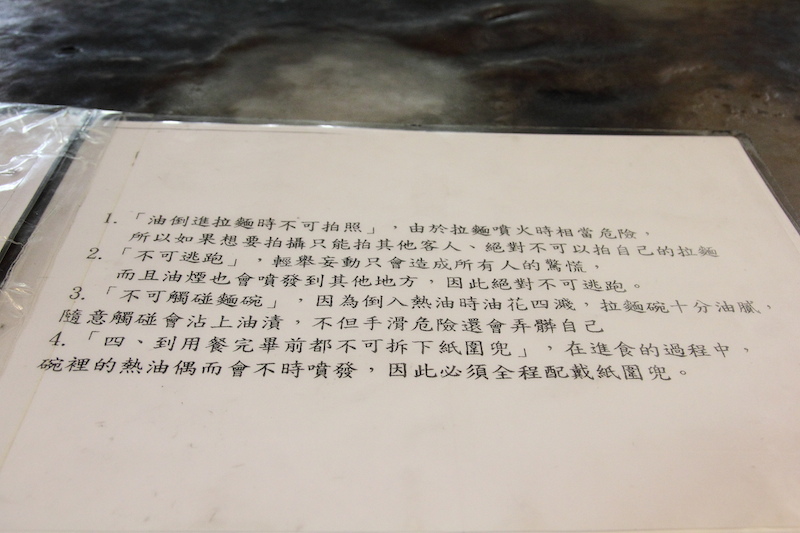 1. 「油倒進拉麵時不可拍照」，由於拉麵噴火時相當危險，
所以如果想要拍攝只能拍其他客人、絕對不可以拍自己的拉麵
2. 「不可逃跑」，輕舉妄動只會造成所有人的驚慌，
而且油煙也會噴發到其他地方，因此絕對不可逃跑。
3. 「不可觸碰麵碗」，因為倒入熱油時油花四濺，拉麵碗十分油膩，
隨意觸碰會沾上油漬，不但手滑危險還會弄髒自己
4. 「四、到用餐完畢前都不可拆下紙圍兜」，在進食的過程中，
碗裡的熱油偶而會不時噴發，因此必須全程配戴紙圍兜。